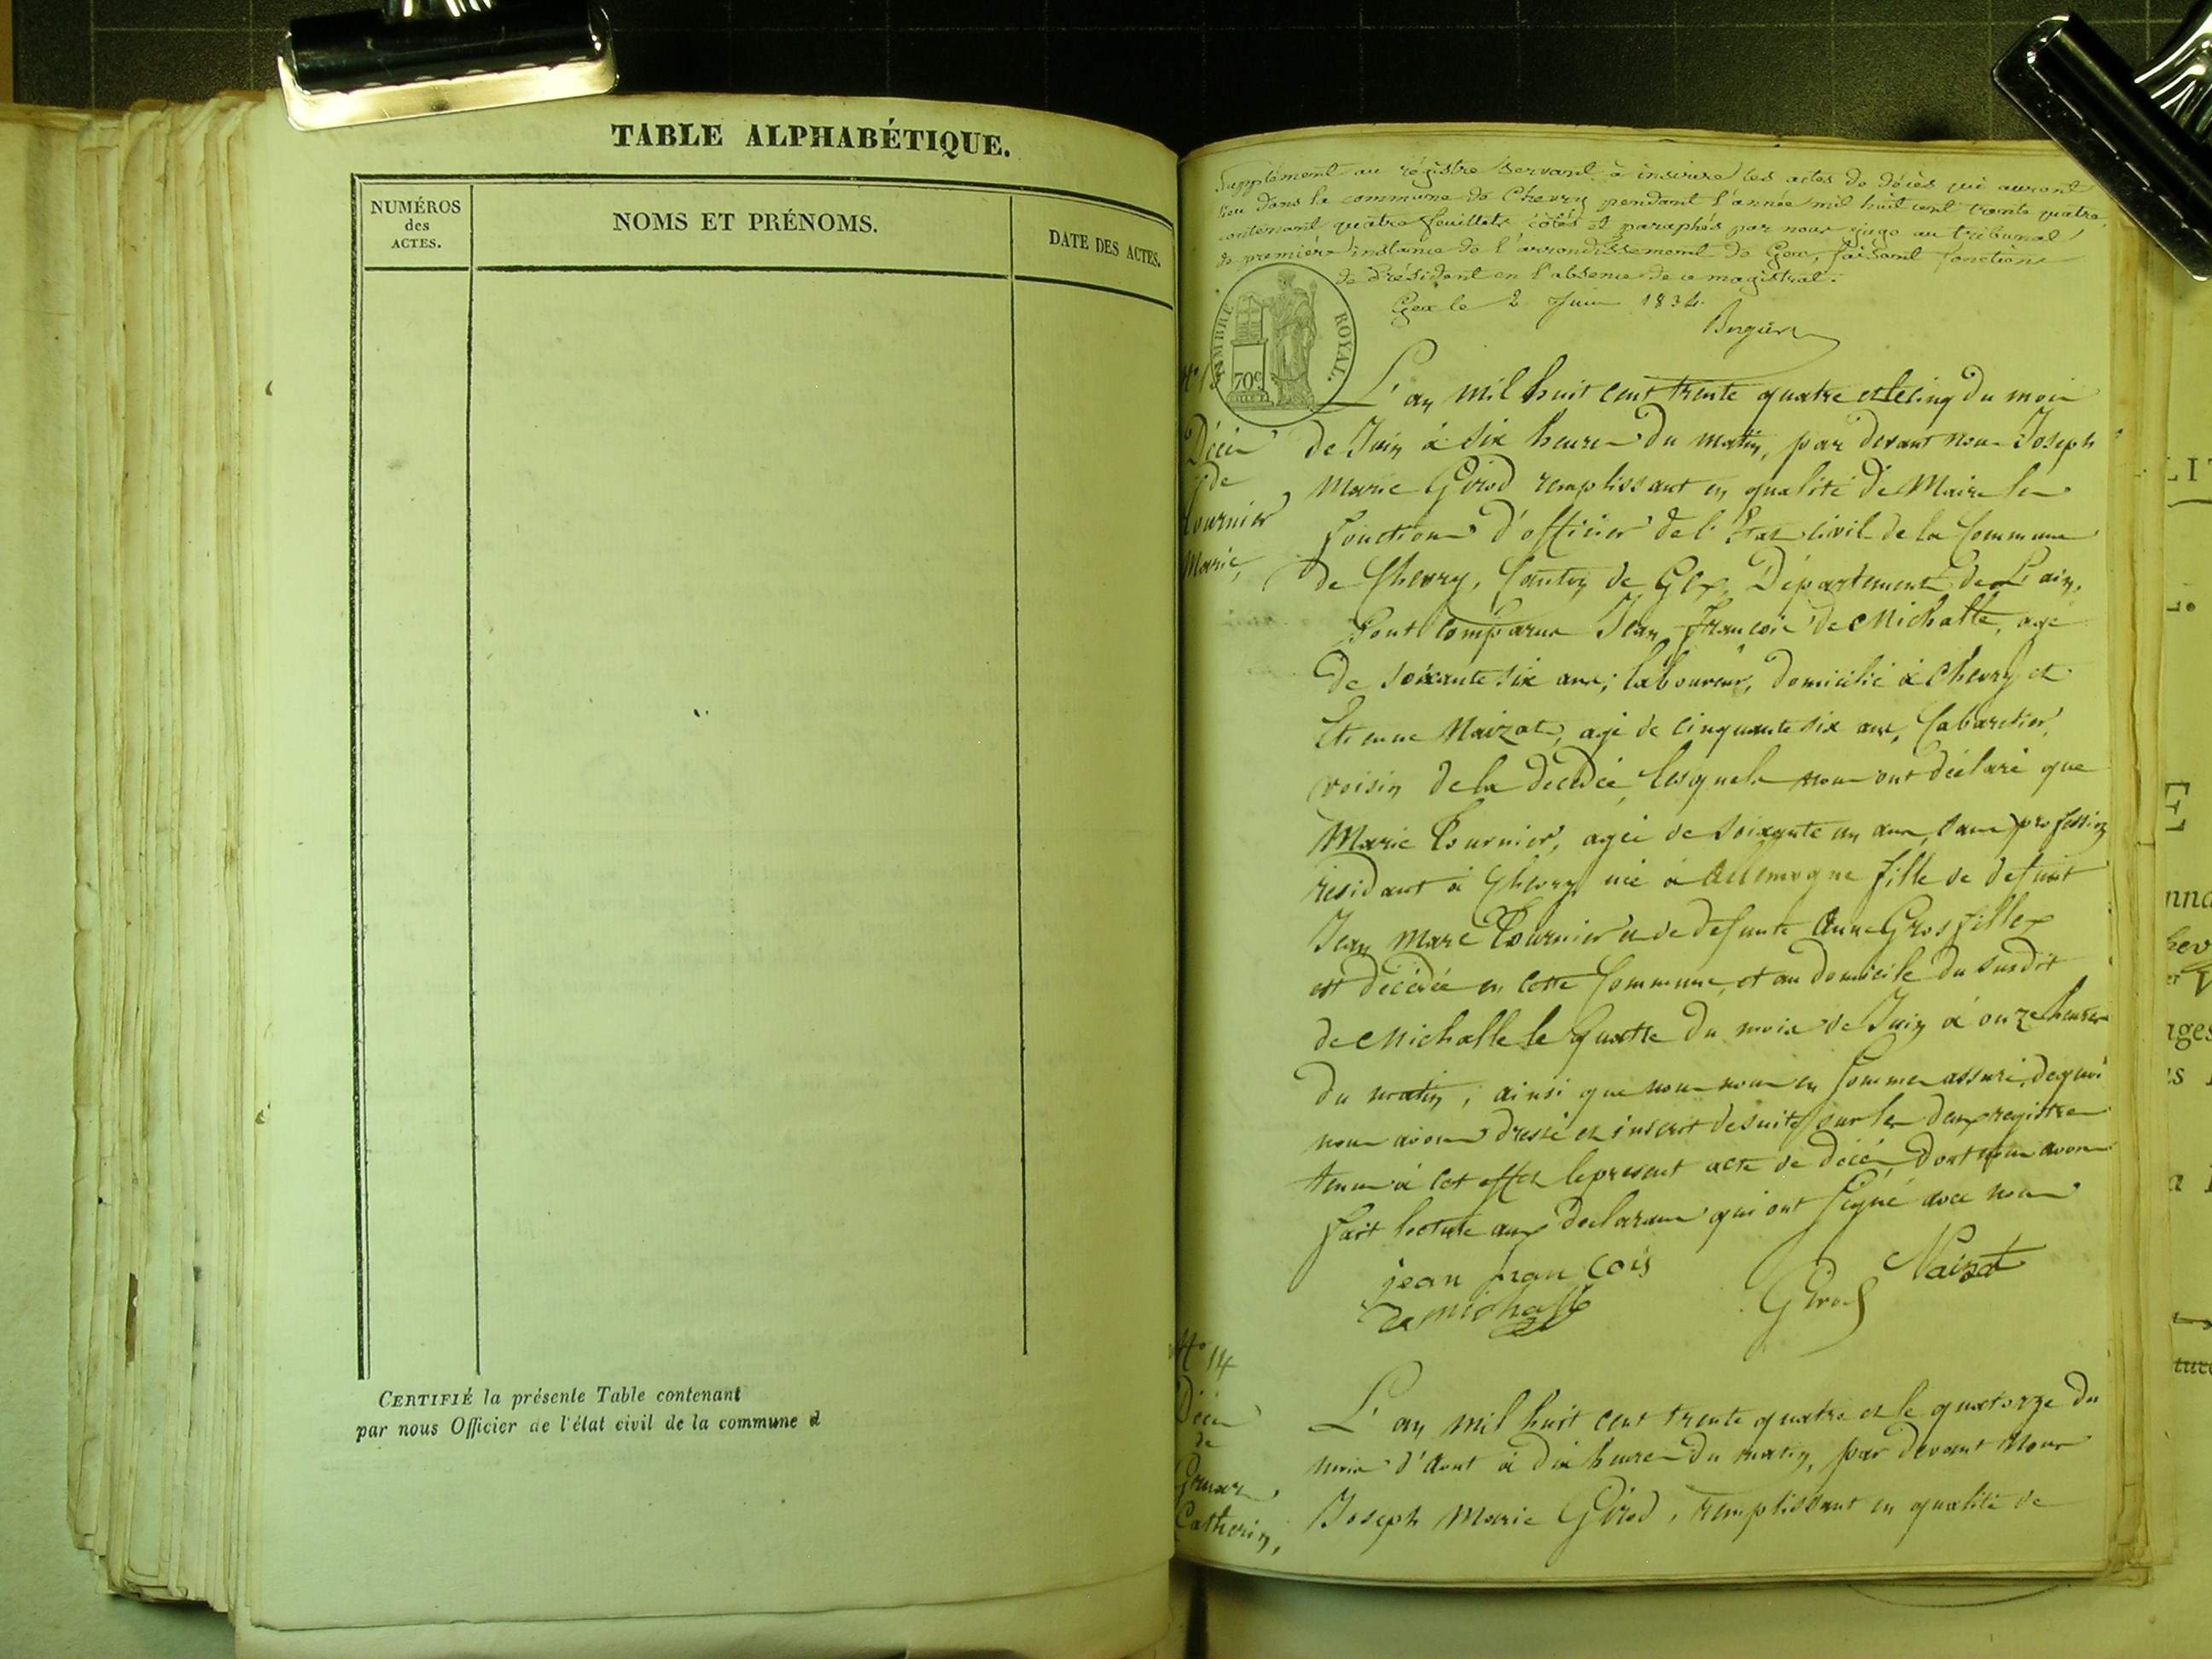 TABLE ALPHABÉTIQUE.
NUMÉROS
des
ACTES.
NOMS ET PRÉNOMS.
DATE DES ACTES.
CERTIFIÉ la présente Table contenant
par nous Officier de l'état civil de la commune d
Supplément au régistre servant à inscrire les actes de décès qui auront
lieu dans la commune de Chevry pendant l'année mil huit cent trente quatre,
contenant quatre feuillets, cotés et paraphés par nous juge au tribunal
de première instance de l'arrondissement de Gex, faisant fonctions
de Président en l'absence de ce magistrat.
Gex le 2 Juin 1834.
TIMBRE ROYAL.
70c
Décès
de
Tournier
Marie,
L'an mil huit cent trente quatre et le cinq du mois
de Juin à six heures du matin, par devant nous Joseph
Marie Girod remplissant en qualité de Maire les
fonctions d'officier de l'Etat civil de la Commune
de Chevry, Canton de Gex, Département de L'ain,
Sont comparus Jean François de Michalle, agé
de soixante six ans, laboureur, domicilié à Chevry et
Etienne Naizot, agé de cinquante six ans, Cabaretier,
voisin de la décédée, lesquels nous ont déclaré que
Marie Tournier, agée de soixante un ans, sans profession
résidant à Chevry née à Allemogne fille de defunt
Jean Marc Tournier et de defunte Anne Grosfillex
est décédée en cette Commune, et au domicile du susdit
de Michalle le quatre du mois de Juin à onze heures
du matin, ainsi que nous nous en sommes assuré, de quoi
nous avons dressé et inscrit de suite sur les deux registres
tenus à cet effet le present acte de décès, dont nous avons
fait lecture aux declarans qui ont signé avec nous
jean francois
de michalle
Girod
Naizot
No 14
Décès
de
Catherin,
L'an mil huit cent trente quatre et le quatorze du
mois d'Aout à dix heures du matin, par devant nous
Joseph Marie Girod, remplissant en qualité de